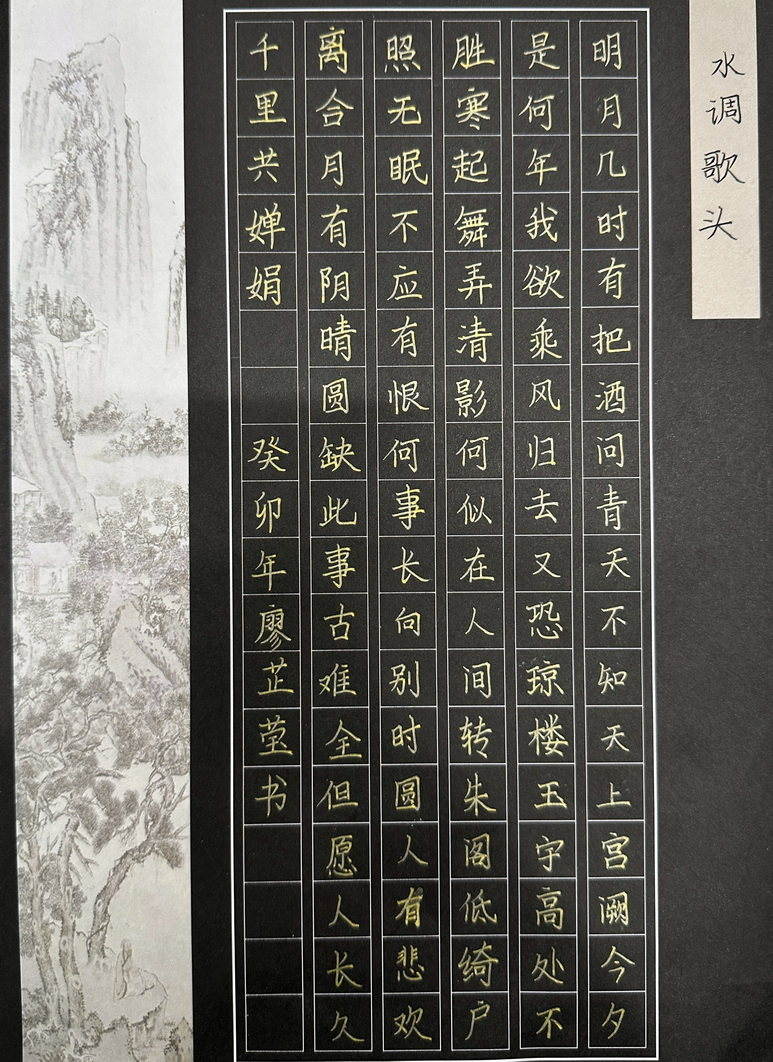 水调歌头
明月几时有把酒问青天不知天上宫阙今夕
是何年我欲乘风归去又恐琼楼玉宇高处不
胜寒起舞弄清影何似在人间转朱阁低绮户
照无眠不应有恨何事长向别时圆人有悲欢
离合月有阴晴圆缺此事古难全但愿人长久
千里共婵娟 癸卯年廖芷莹书